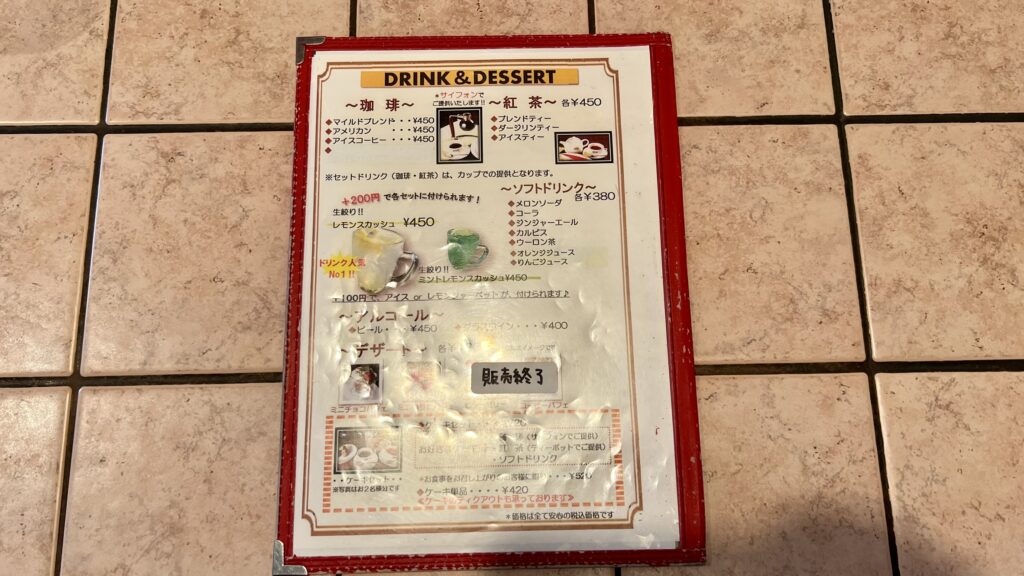 DRINK & DESSERT
～珈 琲～
★サイフォンで
ご提供いたします!!
～紅 茶～ 各¥450
◆マイルドブレンド・・・¥450
◆アメリカン ・・・¥450
◆アイスコーヒー・・・¥450
◆
◆ブレンドティー
◆ダージリンティー
◆アイスティー
※セットドリンク（珈琲・紅茶）は、カップでの提供となります。
+200円 で各セットに付けられます！
生絞り!!
レモンスカッシュ ¥450
ドリンク人気
No1!!
生絞り!!
ミントレモンスカッシュ¥450
～ソフトドリンク～
各¥380
◆メロンソーダ
◆コーラ
◆ジンジャーエール
◆カルピス
◆ウーロン茶
◆オレンジジュース
◆りんごジュース
+100円で、アイス or レモンシャーベットが、付けられます♪
～アルコール～
◆ビール・・・¥450 ◆グラスワイン・・・¥400
～デザート～ 各
販売終了
ミニチョコパフェ
（サイフォンでご提供）
茶（ティーポットでご提供）
・ソフトドリンク
・・ケーキセット・・
※写真はお2名様分です
◆お食事をお召し上がりのお客様に限り・・・¥520
◆ケーキ単品・・・・¥420
≪ケーキのテイクアウトも承っております≫
＊価格は全て安心の税込価格です